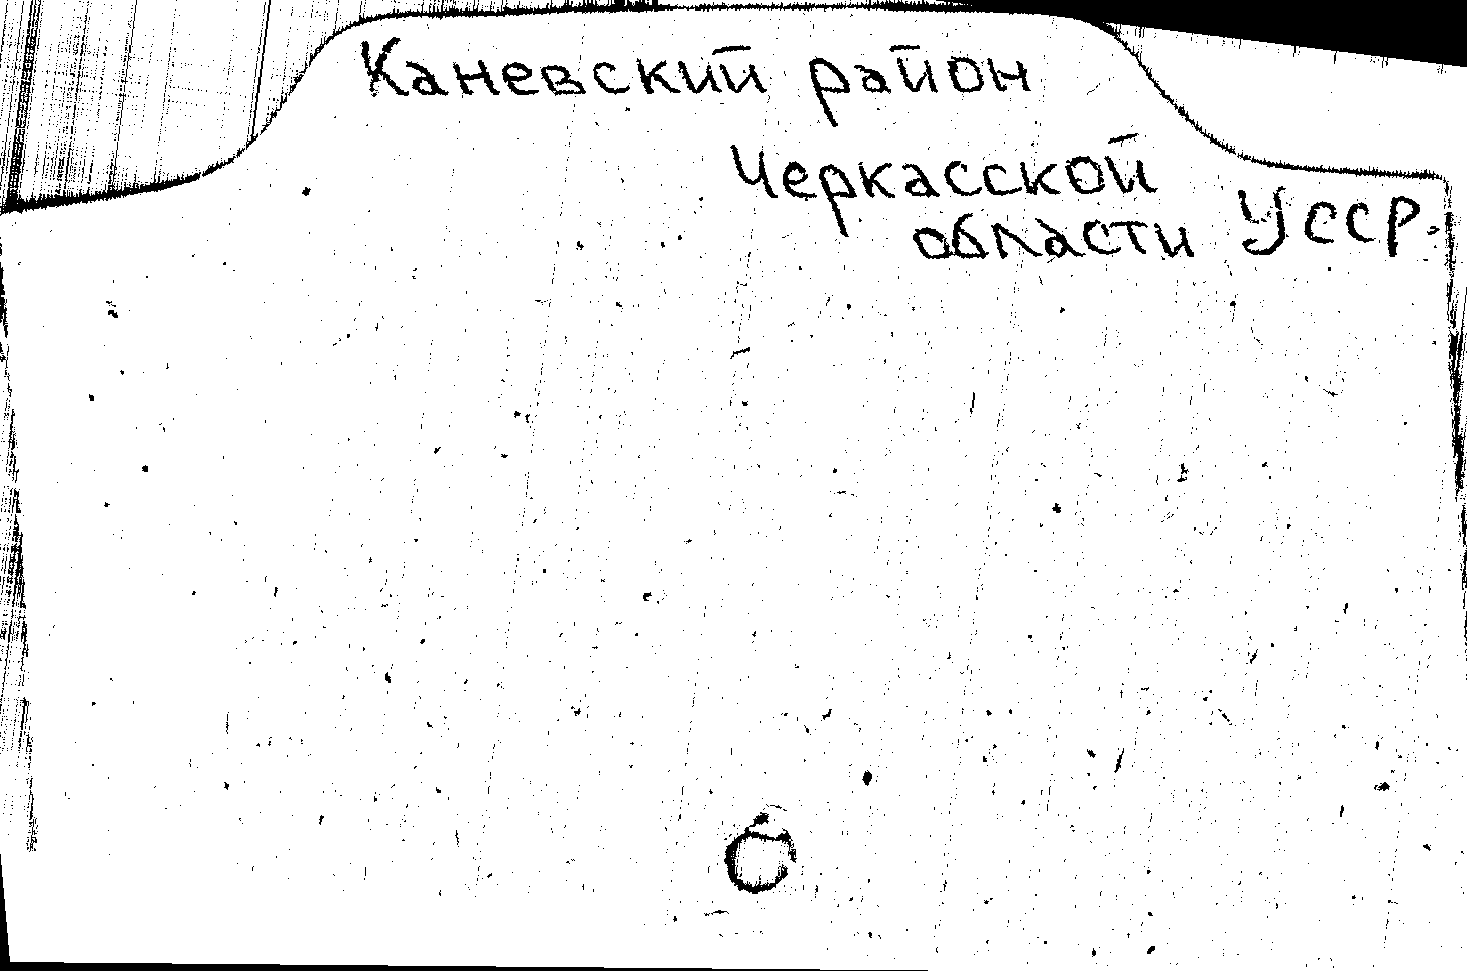 Каневский район
Черкасской
области УССР